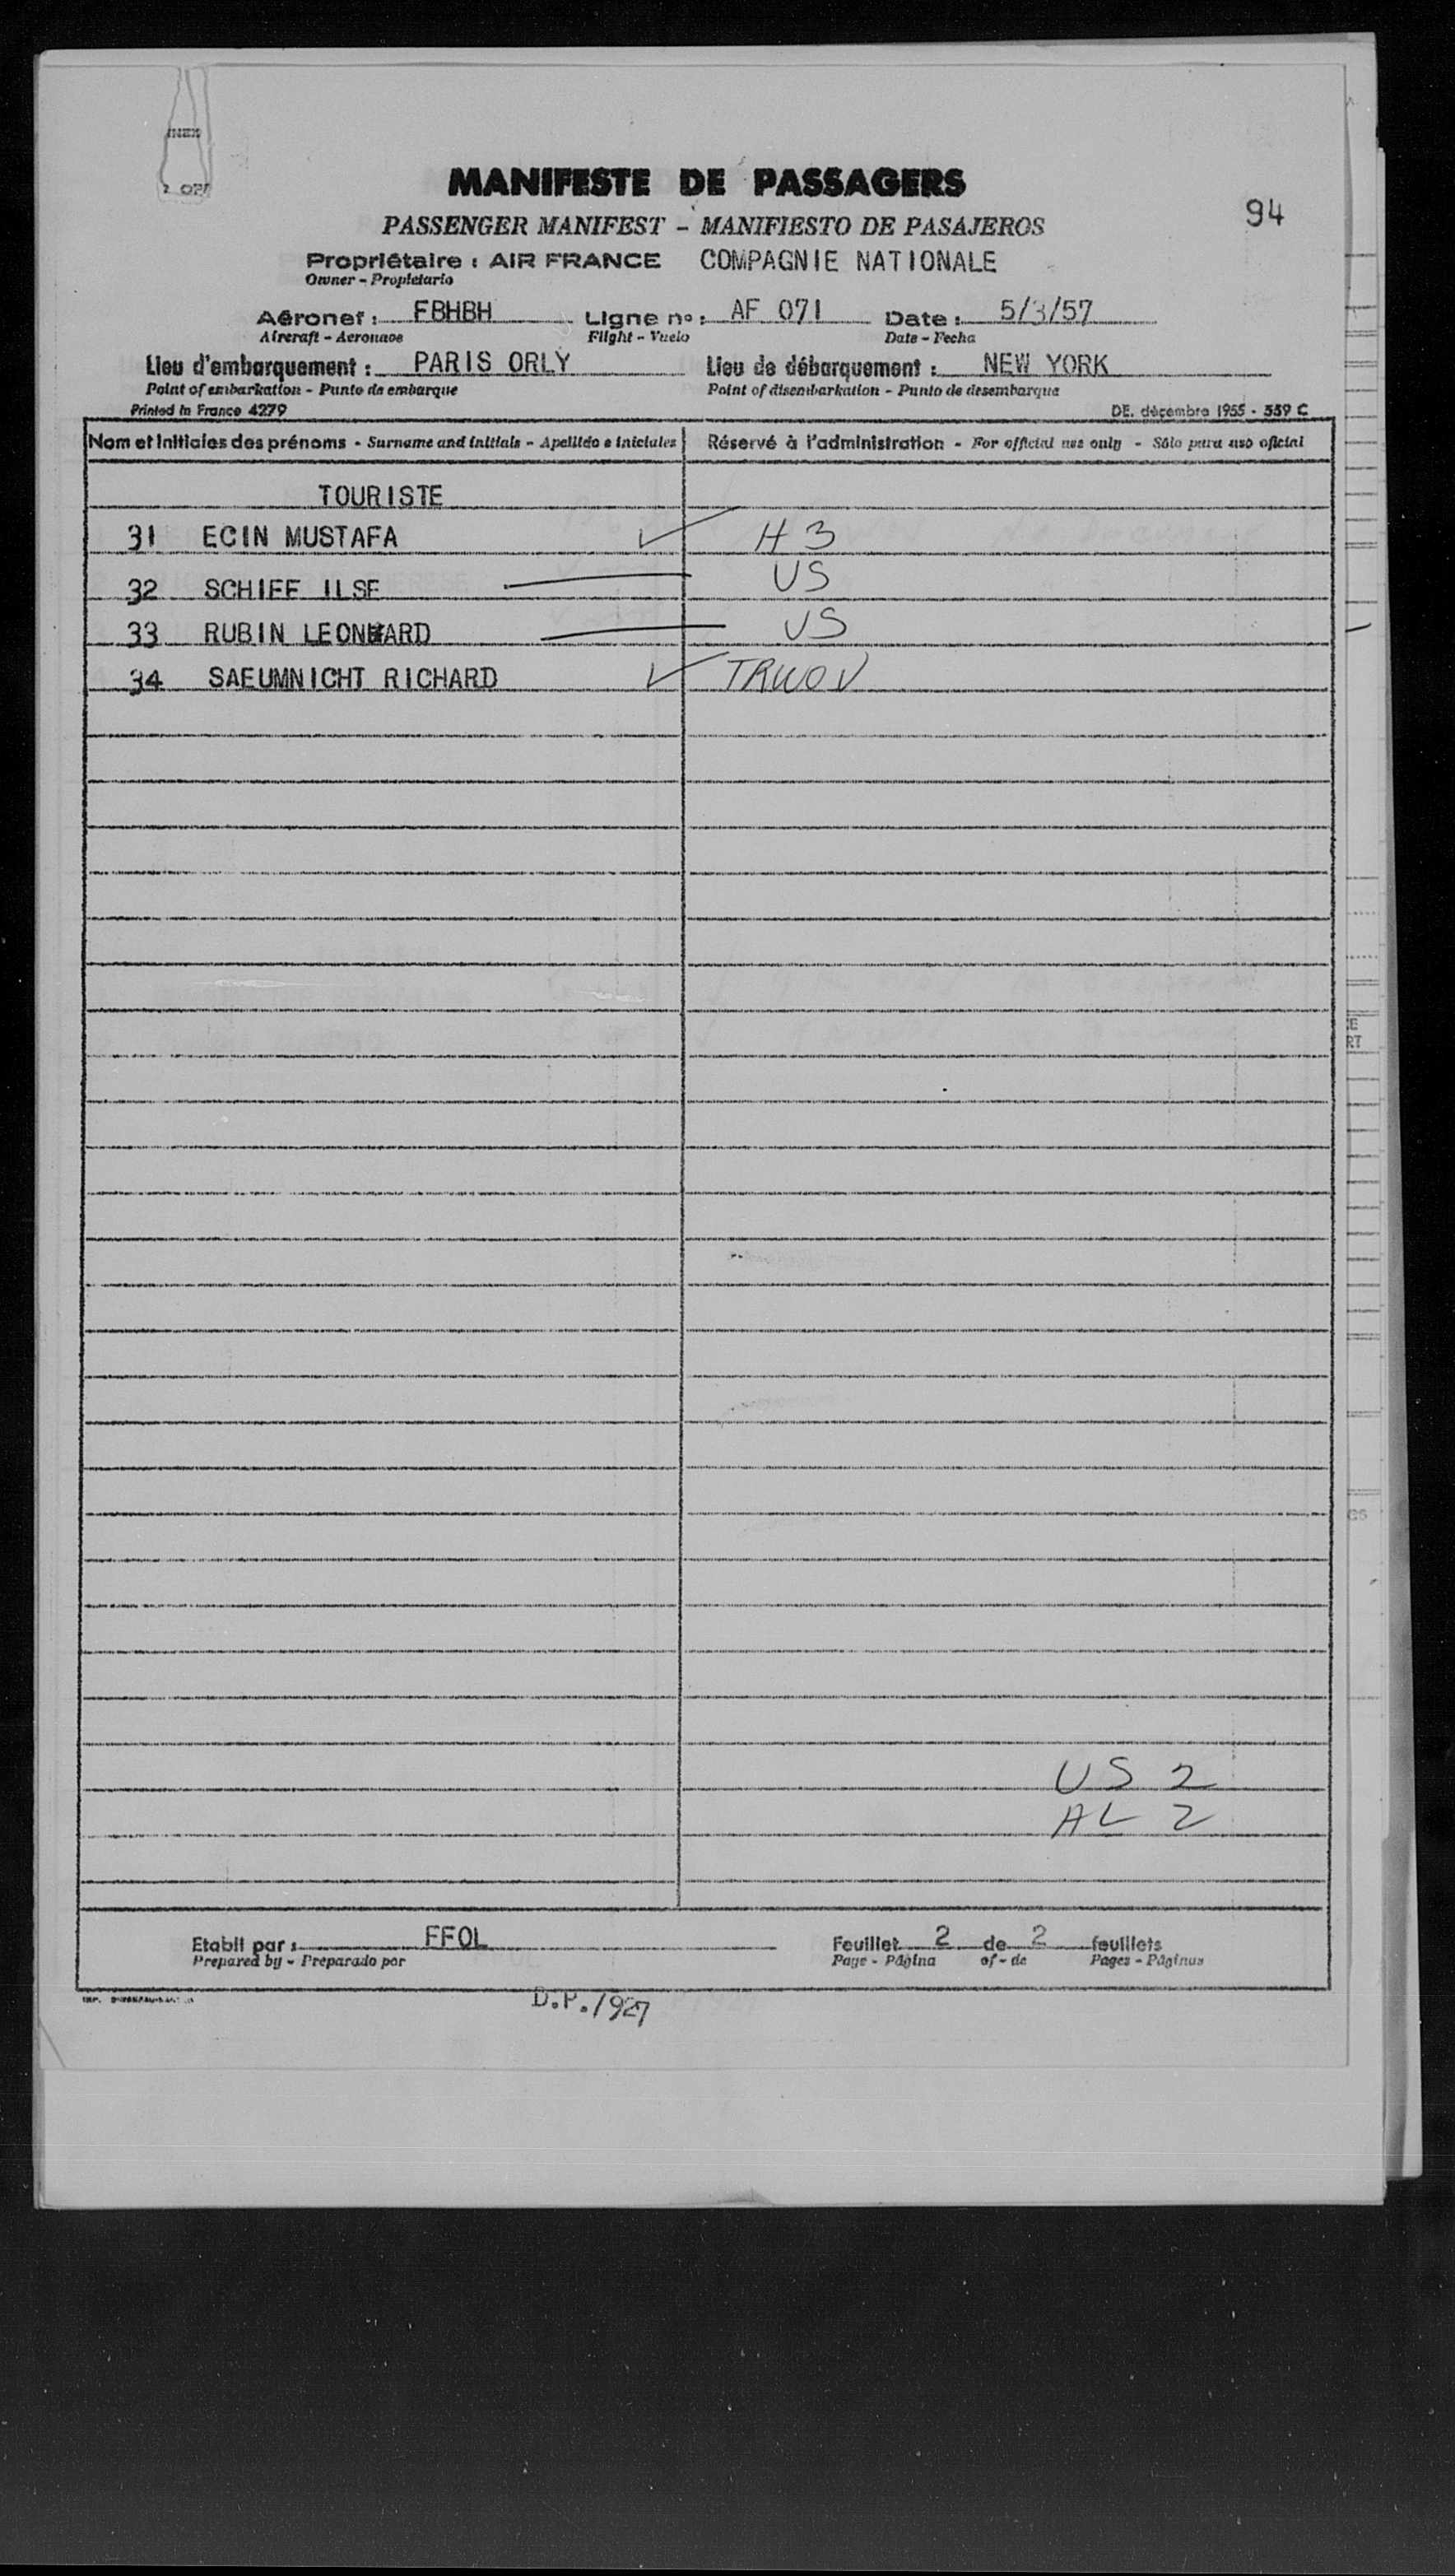 MANIFESTE DE PASSAGERS
PASSENGER MANIFEST - MANIFIESTO DE PASAJEROS
94
Propriétaire : AIR FRANCE COMPAGNIE NATIONALE
Owner - Propietario
Aéronef : FBHBH Ligne n° : AF 071 Date : 5/3/57
Aircraft - Aeronave Flight - Vuelo Date - Fecha
Lieu d'embarquement : PARIS ORLY Lieu de débarquement : NEW YORK
Point of embarkation - Punto de embarque Point of disembarkation - Punto de desembarque
Printed in France 4279 DE. décembre 1955 - 559 C
Nom et Initiales des prénoms - Surname and initials - Apellido e iniciales Réservé à l'administration - For official use only - Sólo para uso oficial
TOURISTE
31 ECIN MUSTAFA ✓ H 3
32 SCHIFF ILSE US
33 RUBIN LEONHARD US
34 SAEUMNICHT RICHARD ✓ TRWOV
US 2
AL 2
Etabli par : FFOL Feuillet 2 de 2 feuillets
Prepared by - Preparado por Page - Página of - de Pages - Páginas
D.P./927